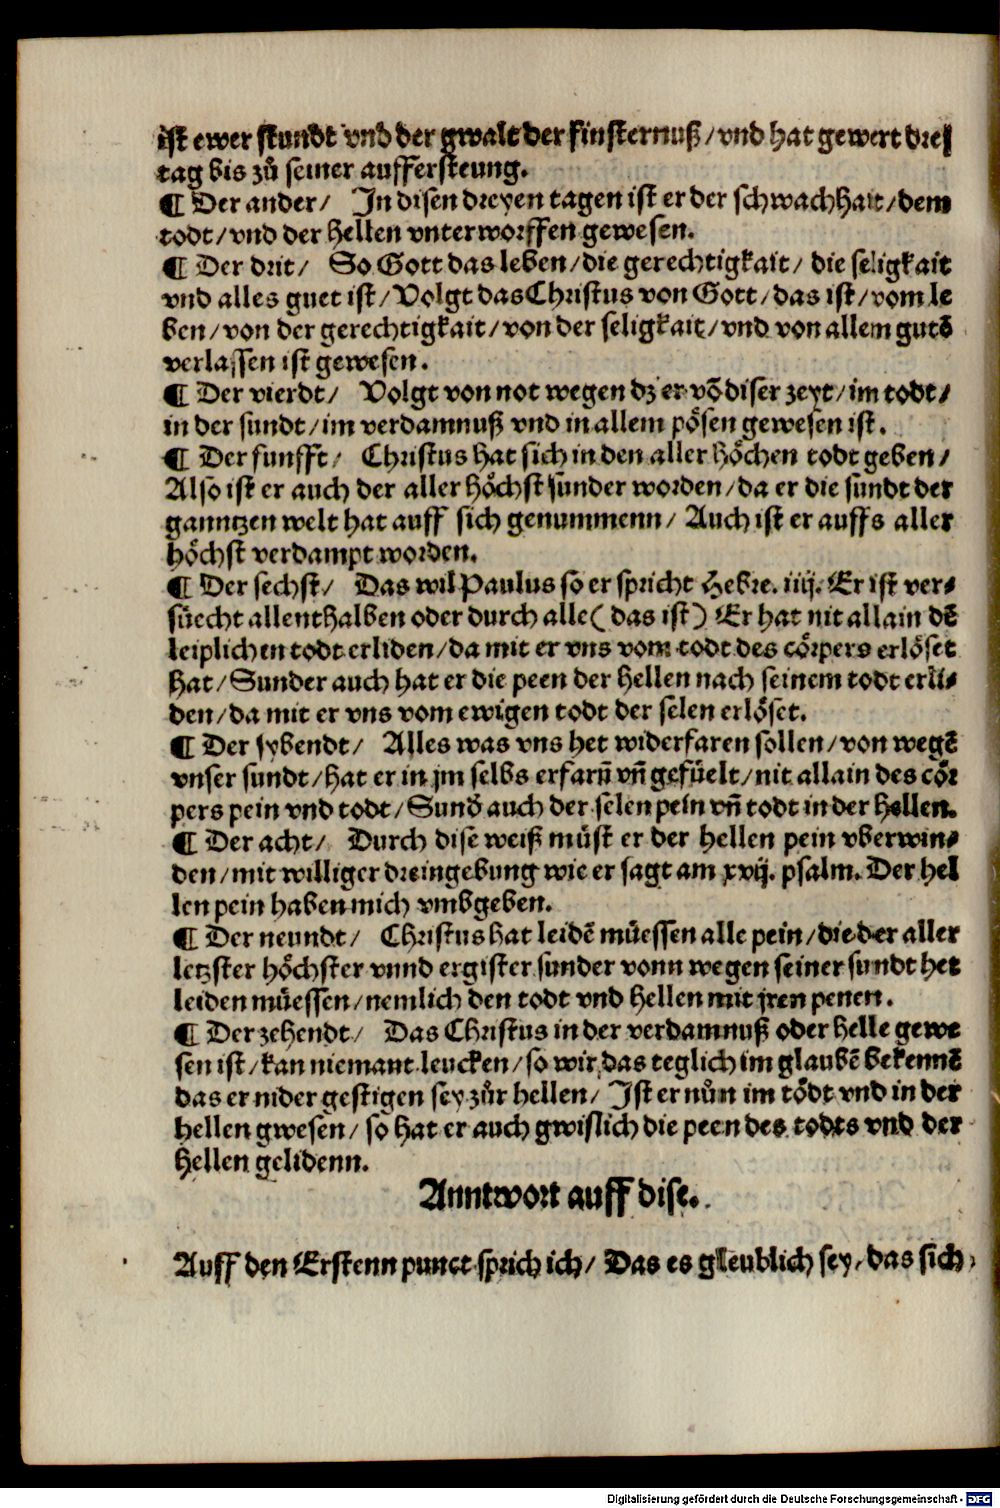 ist ewer stundt vnd der gwalt der finsternuß/vnd hat gewert drei
tag bis zů seiner auffersteung.
¶ Der ander/ In disen dreyen tagen ist er der schwachhait/dem
todt/vnd der hellen vnterworffen gewesen.
¶ Der drit/ So Gott das leben/die gerechtigkait/ die seligkait
vnd alles guet ist/Volgt das Christus von Gott/das ist/vom le
ben/von der gerechtigkait/von der seligkait/vnd von allem gutē
verlassen ist gewesen.
¶ Der vierdt/ Volgt von not wegen dz er vō diser zeyt/im todt/
in der sundt/im verdamnuß vnd in allem pösen gewesen ist.
¶ Der funfft/ Christus hat sich in den aller höchen todt geben/
Also ist er auch der aller höchst sunder worden/da er die sundt der
ganntzen welt hat auff sich genummenn/ Auch ist er auffs aller
höchst verdampt worden.
¶ Der sechst/ Das wil Paulus so er spricht Hebre. iiij. Er ist ver⸗
süecht allenthalben oder durch alle(das ist) Er hat nit allain dē
leiplichen todt erliden/da mit er vns vom todt des cörpers erlöset
hat/Sunder auch hat er die peen der hellen nach seinem todt erli⸗
den/da mit er vns vom ewigen todt der selen erlöset.
¶ Der sybendt/ Alles was vns het widerfaren sollen/von wegē
vnser sundt/hat er in jm selbs erfarn̄ vn̄ gefüelt/nit allain des cör
pers pein vnd todt/Sund̄ auch der selen pein vn̄ todt in der hellen.
¶ Der acht/ Durch dise weiß müst er der hellen pein vberwin⸗
den/mit williger dreingebung wie er sagt am xvij. psalm. Der hel
len pein haben mich vmbgeben.
¶ Der neundt/ Christus hat leidē müessen alle pein/die der aller
letzster höchster vnnd ergister sunder vonn wegen seiner sundt het
leiden müessen/nemlich den todt vnd hellen mit jren penen.
¶ Der zehendt/ Das Christus in der verdamnuß oder helle gewe
sen ist/kan niemant leucken/so wir das teglich im glaubē bekennē
das er nider gestigen sey zůr hellen/ Ist er nůn im tödt vnd in der
hellen gwesen/ so hat er auch gwislich die peen des todts vnd der
hellen gelidenn.
Anntwort auff dise.
Auff den Erstenn punct sprich ich/ Das es gleublich sey, das sich
Digitalisierung gefördert durch die Deutsche Forschungsgemeinschaft - DFG